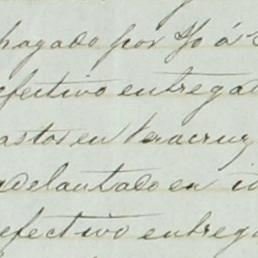 pagado por Yo á
efectivo entregad
astos en Veracruz
adelantado en id
efectivo entrega